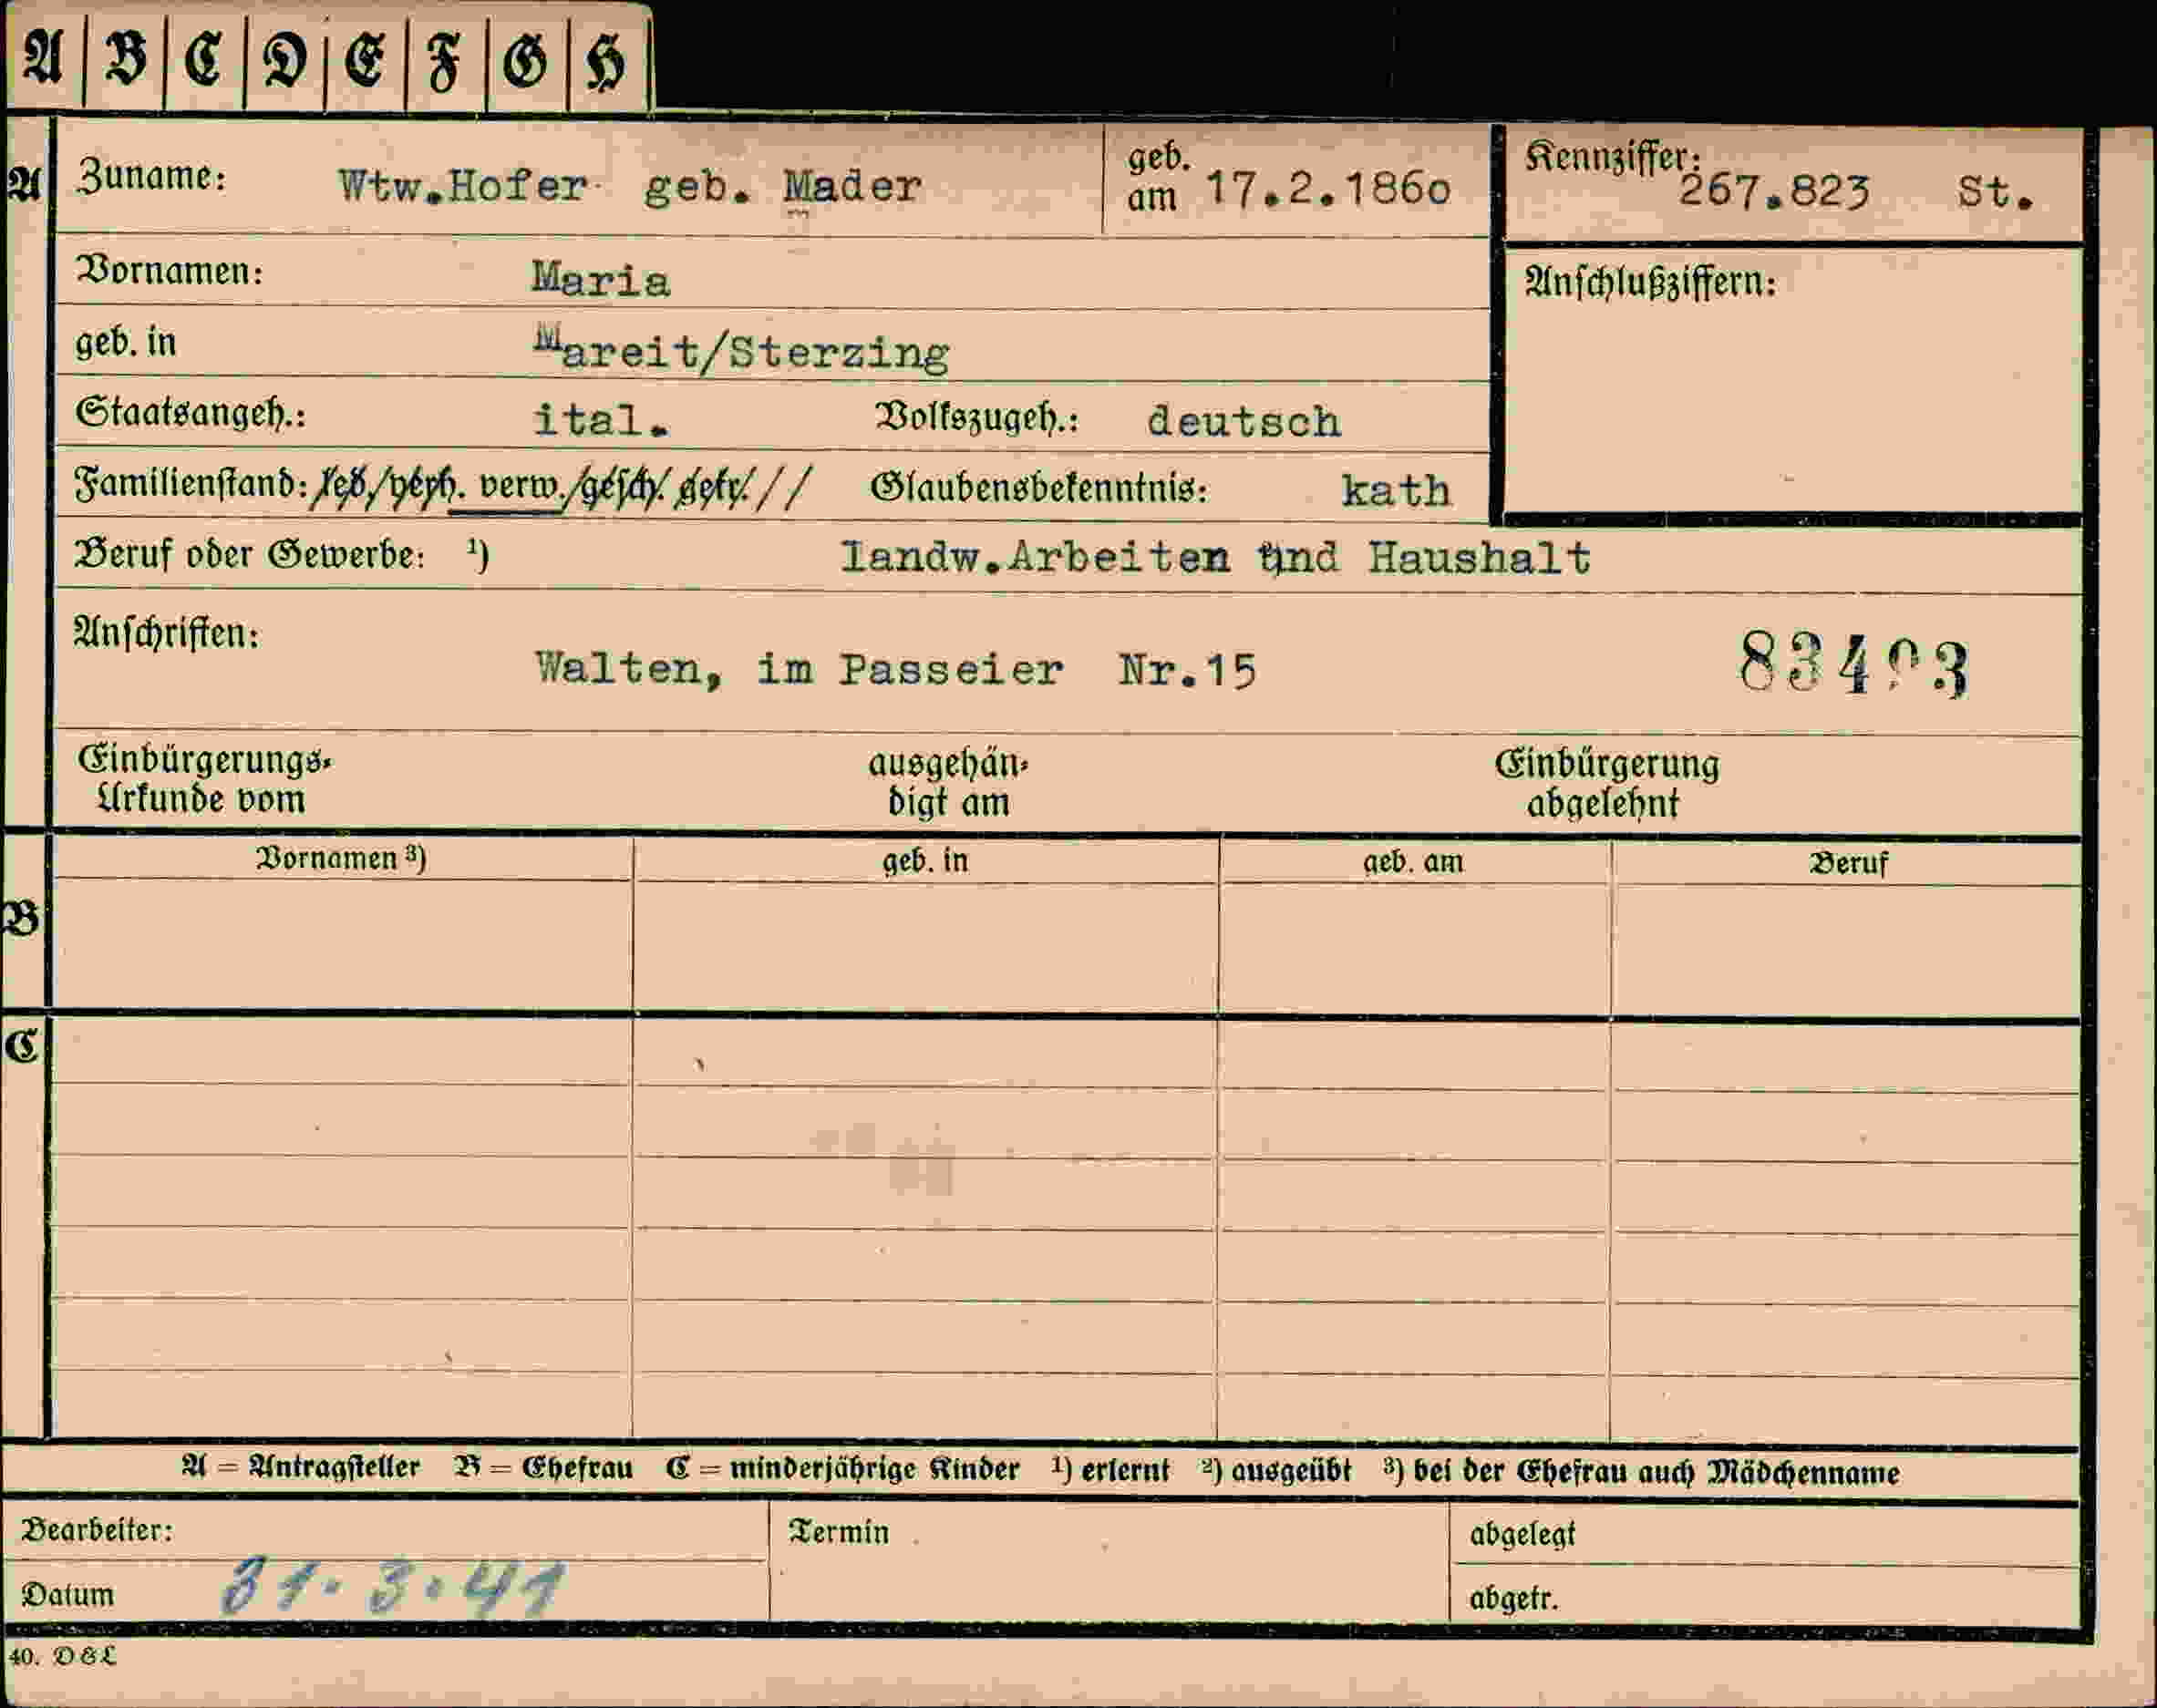 A B C D E F G H
A Zuname: Wtw.Hofer geb. Mader geb. am 17.2.186o Kennziffer: 267.823 St.
Vornamen: Maria Anschlußziffern:
geb. in Mareit/Sterzing
Staatsangeh.: ital. Volkszugeh.: deutsch
Familienstand: led./gesch. verw./gesch. getr. // Glaubensbekenntnis: kath
Beruf oder Gewerbe: ¹) landw.Arbeiten und Haushalt
Anschriften:
Walten, im Passeier Nr.15
Einbürgerungs- ausgehän- Einbürgerung
Urkunde vom digt am abgelehnt
Vornamen ³) geb. in geb. am Beruf
B
C
A = Antragsteller B = Ehefrau C = minderjährige Kinder ¹) erlernt ²) ausgeübt ³) bei der Ehefrau auch Mädchenname
Bearbeiter: Termin abgelegt
Datum 31.3.41 abgetr.
40. D&L